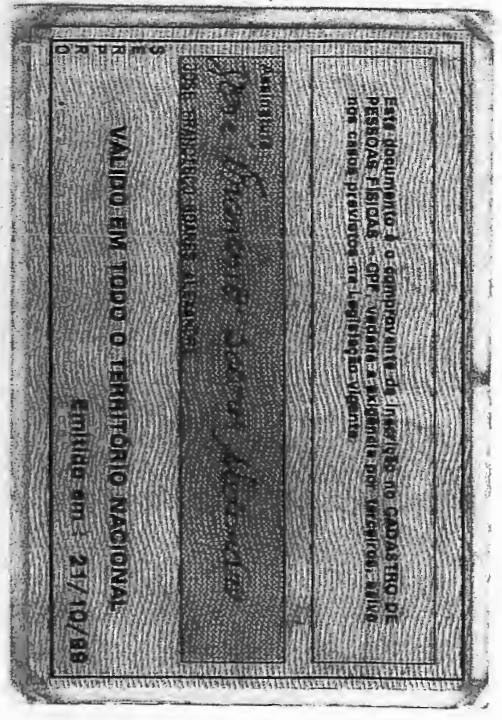 Este documento é o comprovante de inscrição no CADASTRO DE
PESSOAS FÍSICAS - CPF, vedada a exigência por terceiros, salvo
nos casos previstos na Legislação vigente.
Assinatura
José Francisco Soares
JOSE FRANCISCO SOARES
VÁLIDO EM TODO O TERRITÓRIO NACIONAL
Emitido em: 21/10/88
S
E
R
P
R
O